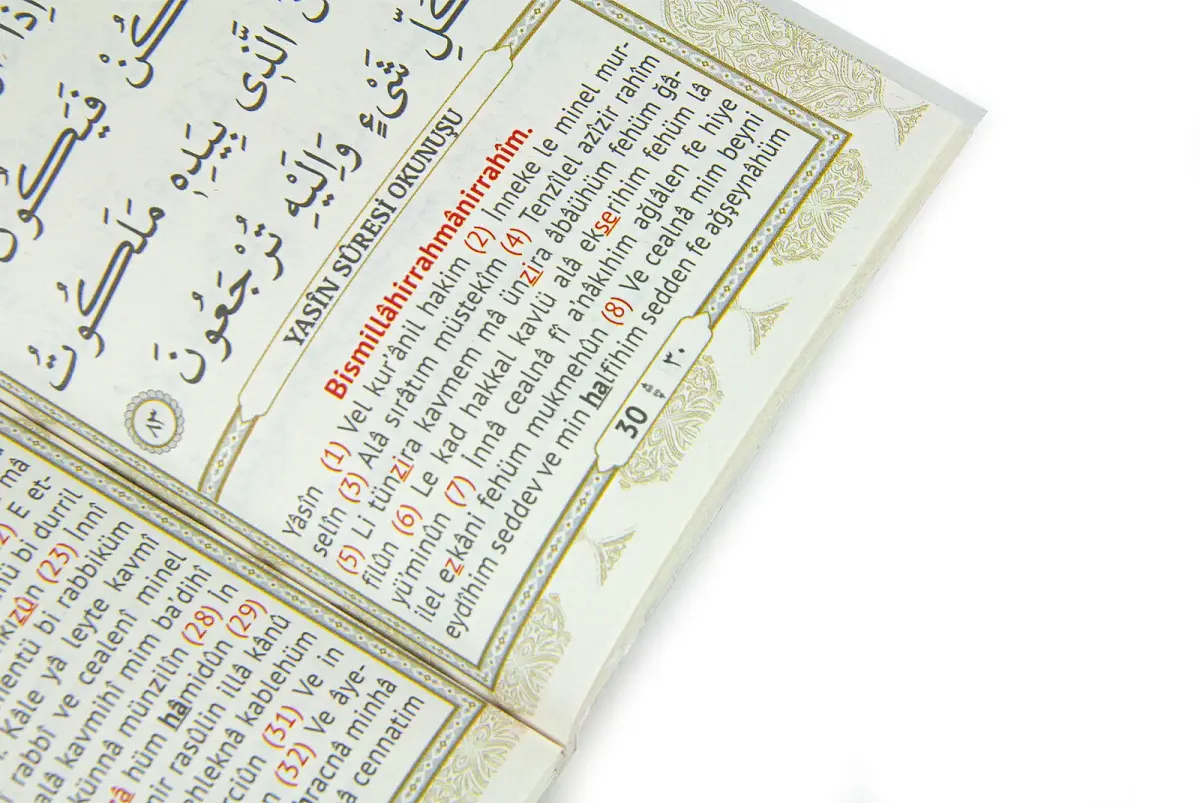 اِذَا
كُنْ فَيَكُونُ
الَّذ۪ى بِيَدِه۪ مَلَكُوتُ
كُلِّ شَىْءٍ وَاِلَيْهِ تُرْجَعُونَ ٨٣
YASÎN SÛRESİ OKUNUŞU
Bismillâhirrahmânirrahîm.
Yâsîn (1) Vel kur’ânil hakim (2) İnneke le minel mur-
selîn (3) Alâ sırâtım müstekîm (4) Tenzîlel azîzir rahîm
(5) Li tünzira kavmem mâ ünzira âbâühüm fehüm ğâ-
filûn (6) Le kad hakkal kavlü alâ ekserihim fehüm lâ
yü’minûn (7) İnnâ cealnâ fî a’nâkıhim ağlâlen fe hiye
ilel ezkâni fehüm mukmehûn (8) Ve cealnâ mim beyni
eydîhim seddev ve min halfihim sedden fe ağşeynâhüm
30 ٣٠
mâ
E et-
bi durril
(23) İnnî
bi rabbiküm
Kâle yâ leyte kavmî
rabbî ve cealenî minel
alâ kavmihî mim ba’dihî
künnâ münzilîn (28) İn
hüm hâmidûn (29)
mir rasûlin illâ kânû
ehleknâ kablehüm
(31) Ve in
(32) Ve âye-
minhâ
cennatim